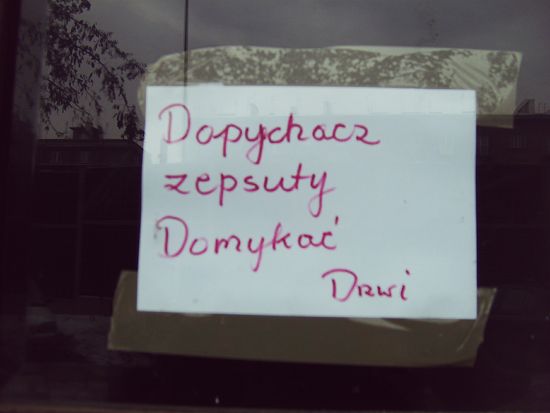 Dopychacz
zepsuty
Domykać
Drwi